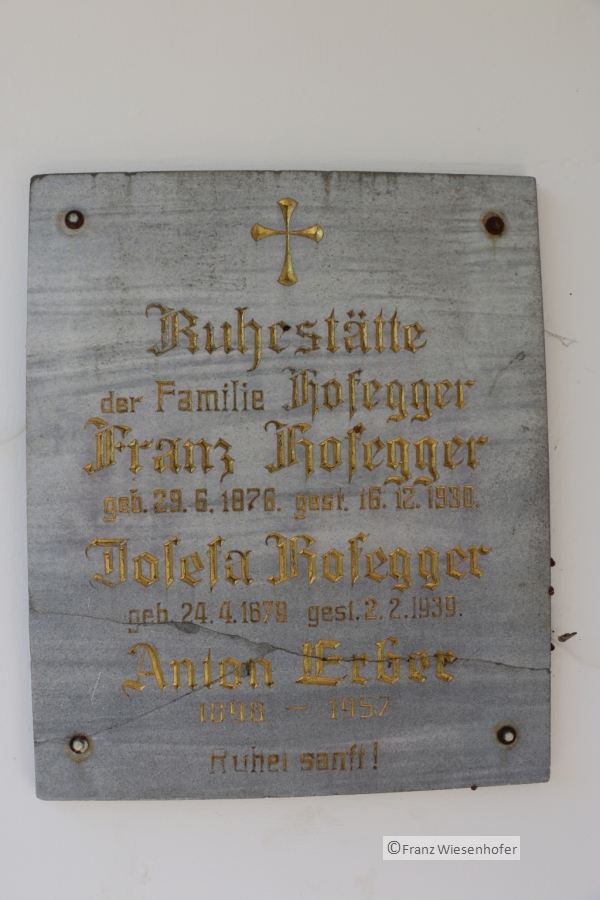 Ruhestätte
der Familie Rosegger
Franz Rosegger
geb. 29. 6. 1876. gest. 16. 12. 1930.
Josefa Rosegger
geb. 24. 4. 1879 gest. 2. 2. 1939.
Anton Erber
1898 — 1957
Ruhet sanft!
©Franz Wiesenhofer